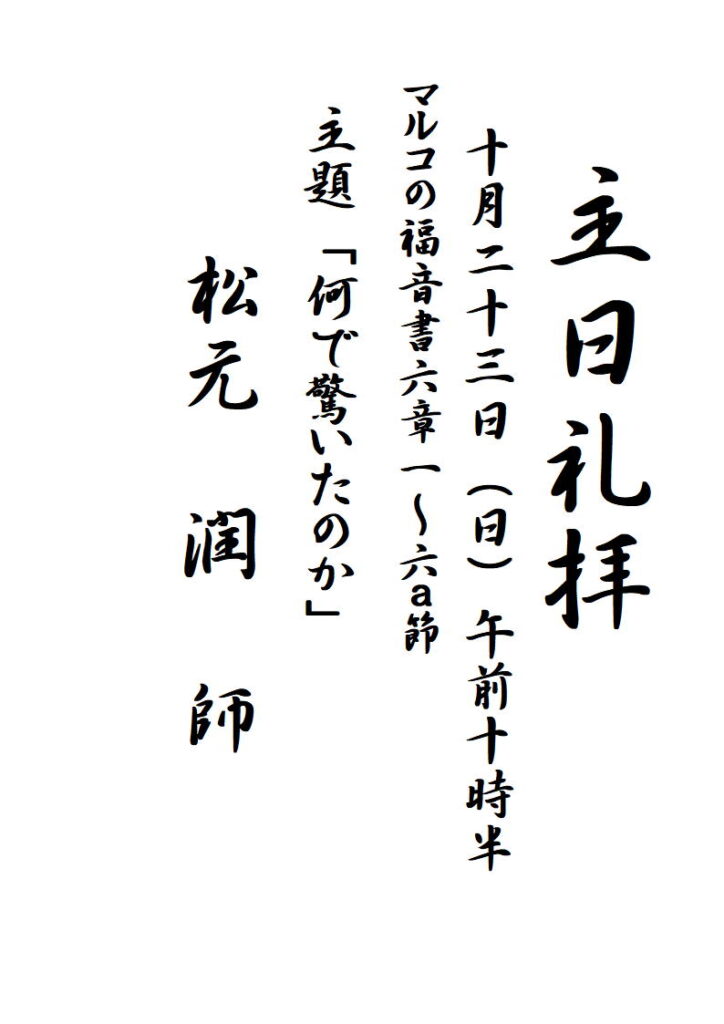 主日礼拝
十月二十三日（日）午前十時半
マルコの福音書六章一～六a節
主題「何で驚いたのか」
松元　潤　師